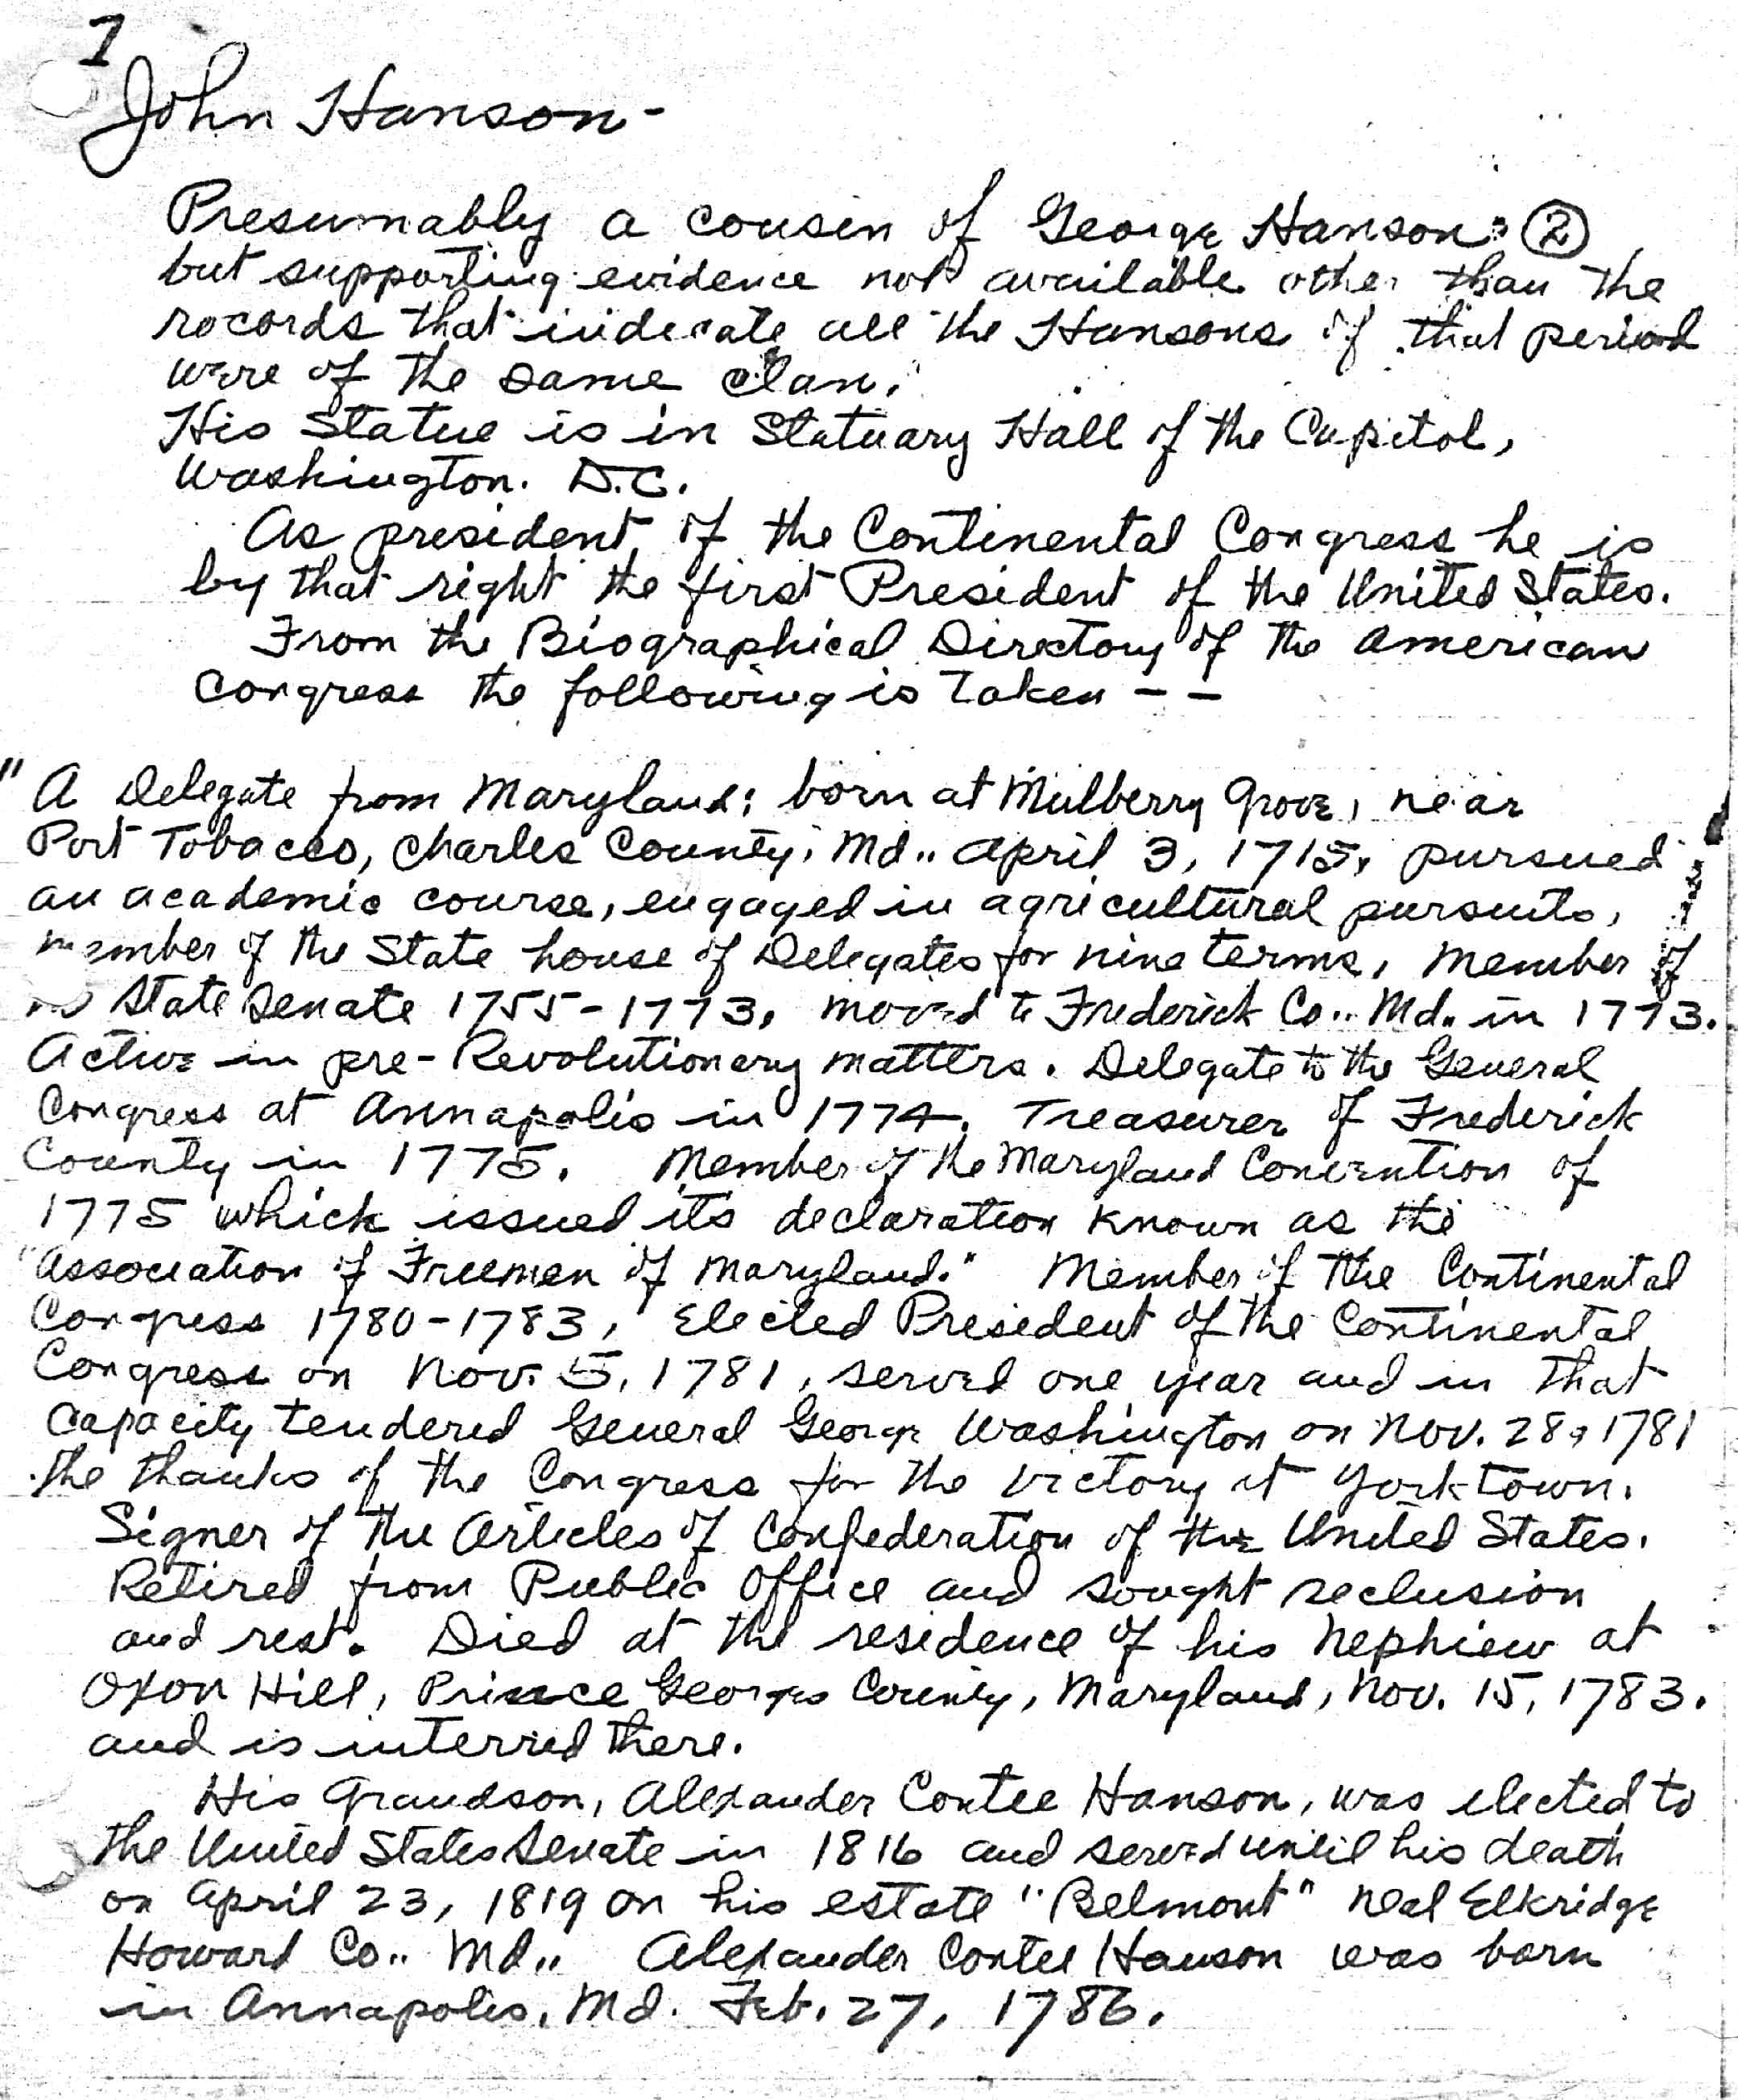 1
John Hanson-
Presumably a cousin of George Hanson: ②
but supporting evidence not available other than the
rocords that indicate all the Hansons of that period
were of the same clan.
His Statue is in Statuary Hall of the Capitol,
Washington. D.C.
As president of the Continental Congress he is
by that right the first President of the United States.
From the Biographical Directory of the American
Congress the following is taken - -
"A Delegate from Maryland; born at Mulberry Grove, near
Port Tobacco, Charles County, Md.. April 3, 1715, pursued
an academic course, engaged in agricultural pursuits,
member of the State house of Delegates for nine terms, member of
State Senate 1755-1773, moved to Frederick Co.. Md.. in 1773.
Active in pre-Revolutionary matters. Delegate to the General
Congress at Annapolis in 1774. Treasurer of Frederick
County in 1775. Member of the Maryland Convention of
1775 which issued its declaration known as the
"Association of Freemen of Maryland." Member of the Continental
Congress 1780-1783, Elected President of the Continental
Congress on Nov. 5, 1781, served one year and in that
capacity tendered General George Washington on Nov. 28, 1781
the thanks of the Congress for the victory at Yorktown.
Signer of the Articles of Confederation of the United States.
Retired from Public Office and sought seclusion
and rest. Died at the residence of his nephiew at
Oxon Hill, Prince Georges County, Maryland, Nov. 15, 1783.
and is interred there.
His Grandson, Alexander Contee Hanson, was elected to
the United States Senate in 1816 and served until his death
on April 23, 1819 on his estate "Belmont" neal Elkridge
Howard Co.. Md.. Alexander Contee Hanson was born
in Annapolis, Md. Feb. 27, 1786.